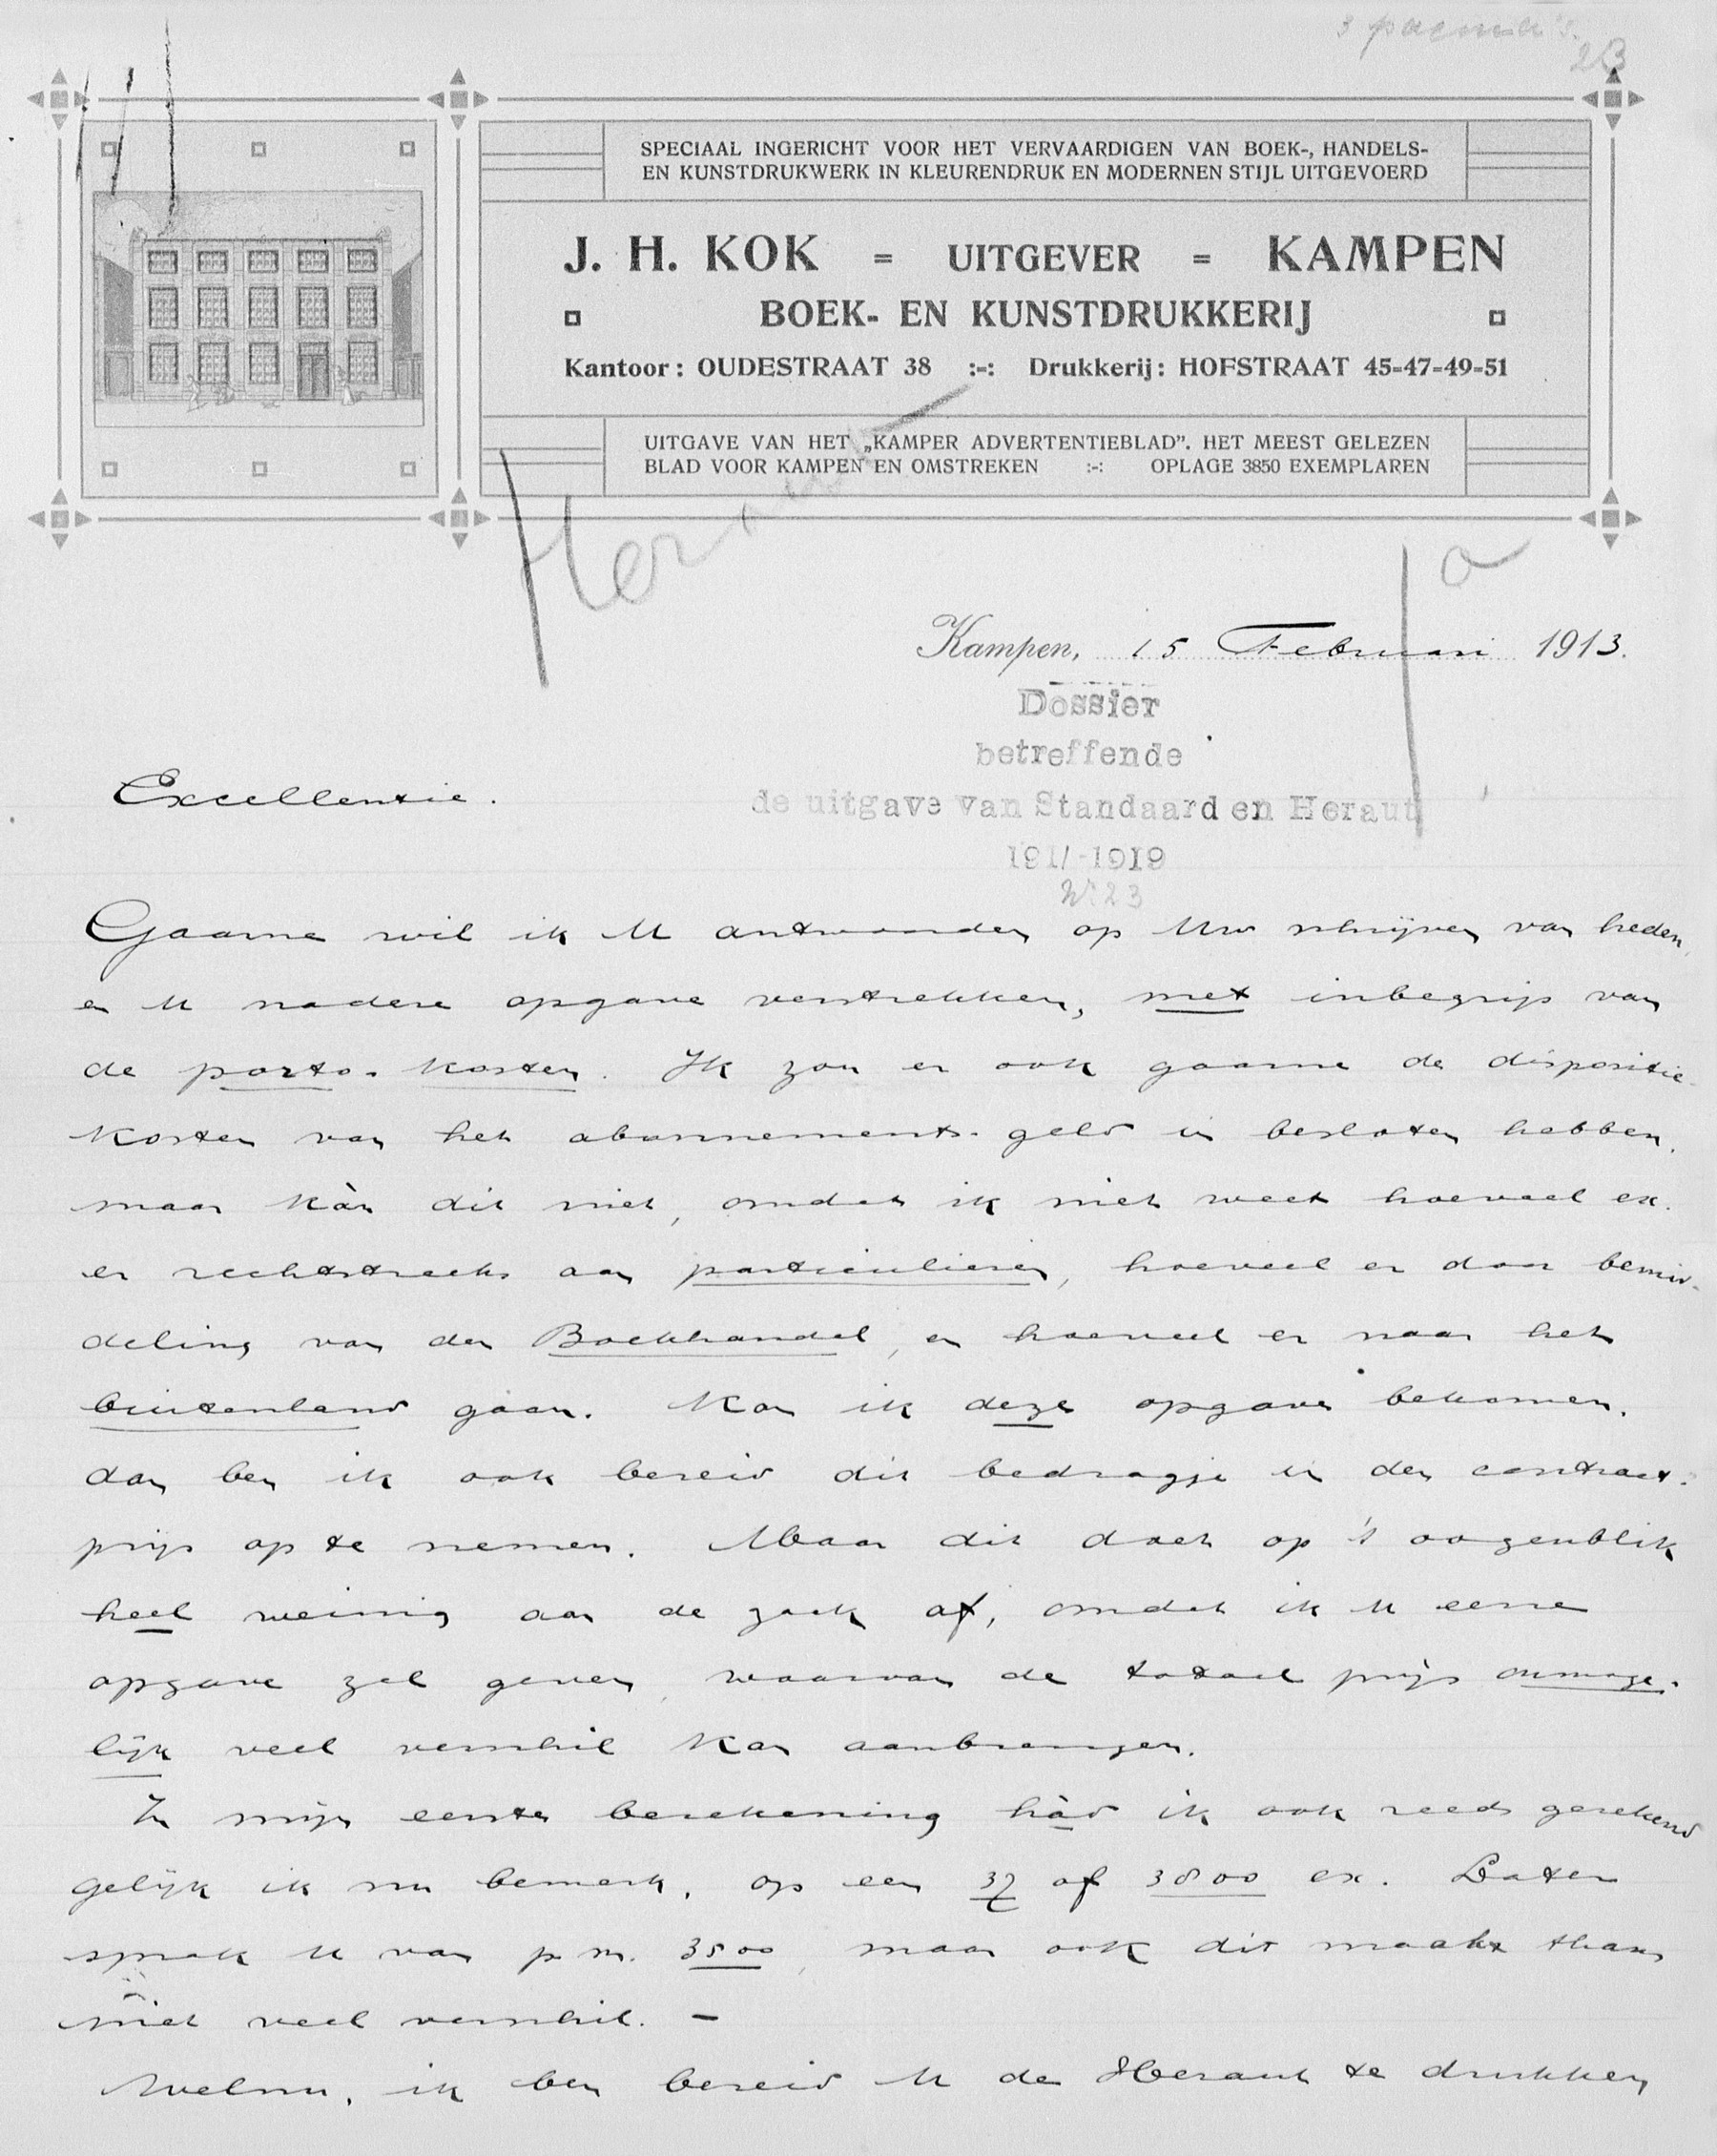 3 pacmk's.
23
SPECIAAL INGERICHT VOOR HET VERVAARDIGEN VAN BOEK-, HANDELS-
EN KUNSTDRUKWERK IN KLEURENDRUK EN MODERNEN STIJL UITGEVOERD
J. H. KOK = UITGEVER = KAMPEN
BOEK- EN KUNSTDRUKKERIJ
Kantoor: OUDESTRAAT 38 :-: Drukkerij: HOFSTRAAT 45-47-49-51
UITGAVE VAN HET „KAMPER ADVERTENTIEBLAD”. HET MEEST GELEZEN
BLAD VOOR KAMPEN EN OMSTREKEN :-: OPLAGE 3850 EXEMPLAREN
Heraut
a
Kampen, 15 Februari 1913.
Dossier
betreffende
de uitgave van Standaard en Heraut
1911-1919
No. 23
Excellentie.
Gaarne wil ik U antwoorden op Uw schrijven van heden,
en U nadere opgave verstrekken, met inbegrip van
de porto-kosten. Ik zou er ook gaarne de dispositie-
kosten van het abonnements-geld in besloten hebben,
maar kàn dit niet, omdat ik niet weet hoeveel ex.
er rechtstreeks aan particulieren, hoeveel er door bemid-
deling van den Boekhandel, en hoeveel er naar het
buitenland gaan. Kan ik deze opgave bekomen,
dan ben ik ook bereid dit bedragje in den contract-
prijs op te nemen. Maar dit doet op 't oogenblik
heel weinig aan de zaak af, omdat ik U eene
opgave zal geven, waarvan de totaal prijs onmoge-
lijk veel verschil kan aanbrengen.
In mijn eerste berekening hàd ik ook reeds gerekend
gelijk ik nu bemerk, op een 37 of 3800 ex. Later
sprak U van p.m. 3500, maar ook dit maakt thans
niet veel verschil. -
Welnu, ik ben bereid U de Heraut te drukken